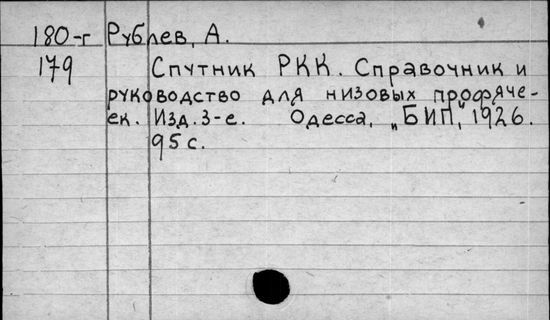 180-г Рублев, А.
179 Спутник РКК. Справочник и
руководство для низовых профяче-
ек. Изд. 3-е. Одесса, „БИП", 1926.
95 с.